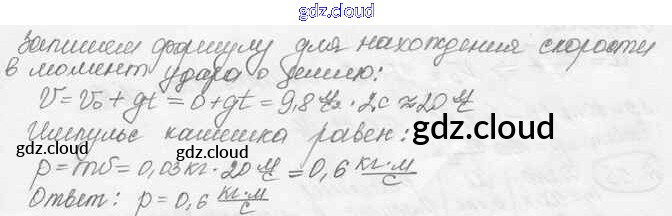 gdz.cloud
Запишем формулу для нахождения скорости
в момент удара о землю:
V = V₀ + gt = 0 + gt = 9,8 м/с² · 2с ≈ 20 м/с
Импульс камешка равен:
gdz.cloud
gdz.cloud
p = mυ = 0,03 кг · 20 м/с = 0,6 кг·м/с
Ответ: p = 0,6 кг·м/с
gdz.cloud